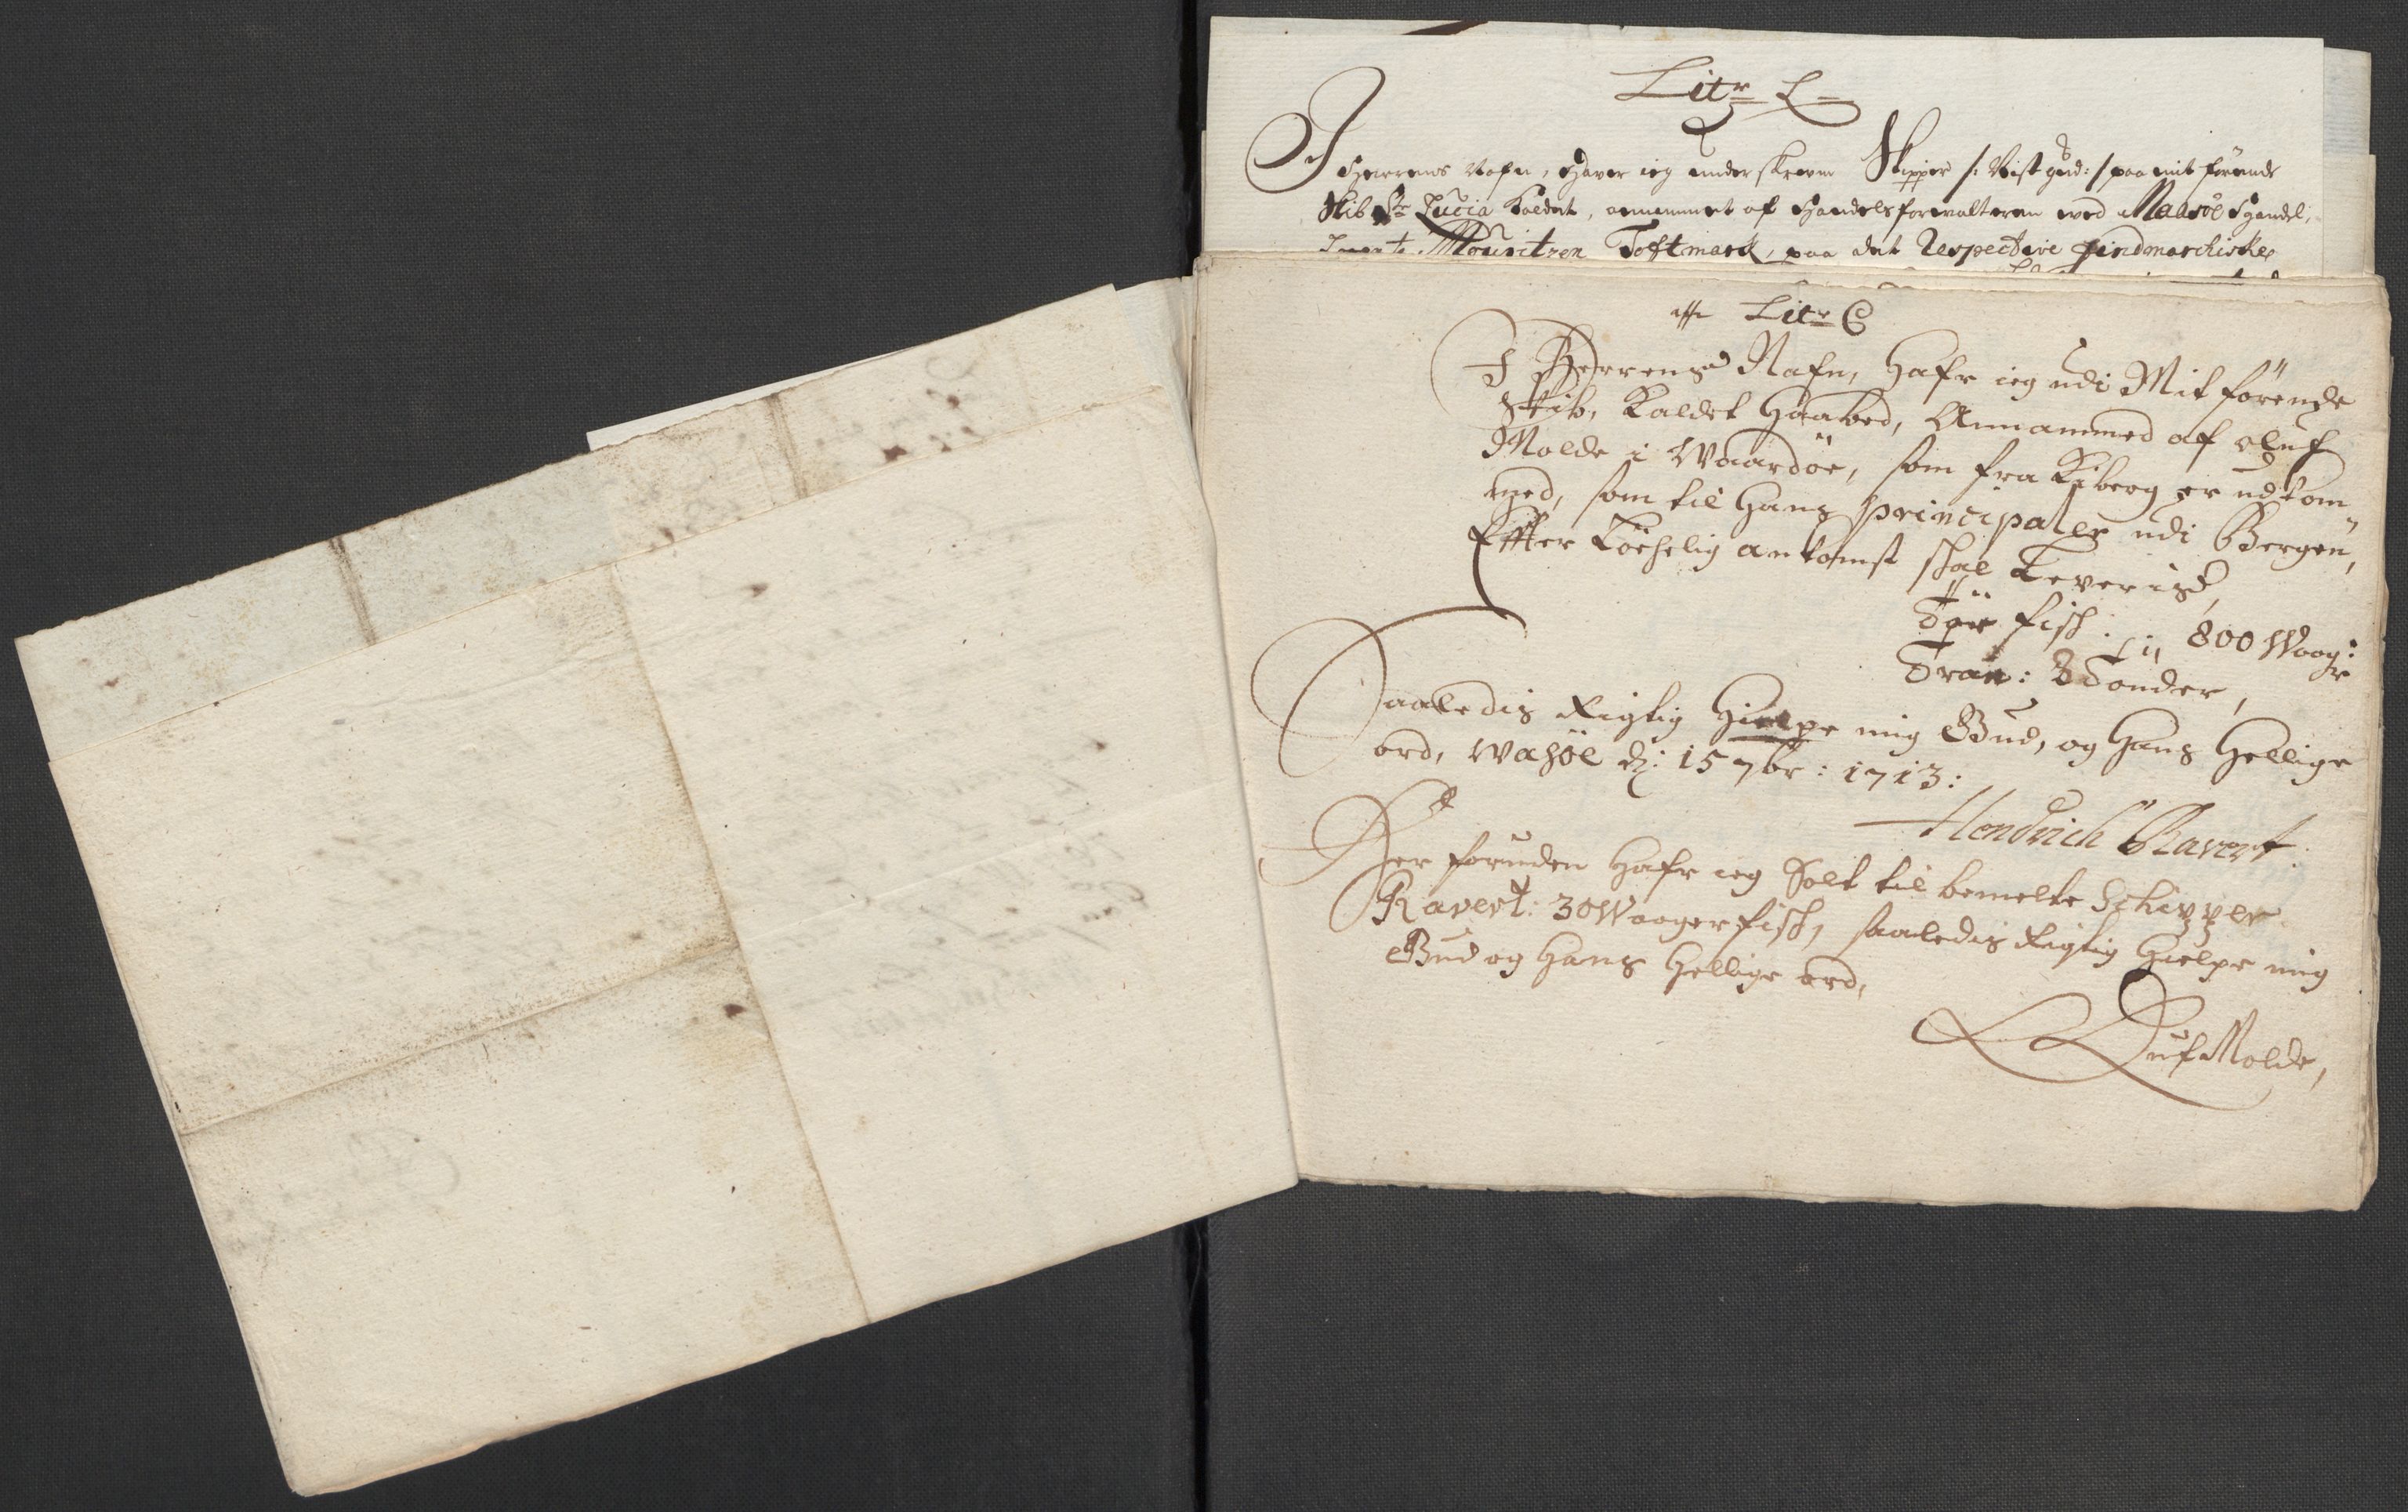 Litr L
I Herrens Nafn, Haver ieg underskreven Skipper /: Nest Gud: / paa mit førende
Skib St. Lucia kaldet, annammet af Handelsforvalteren ved Maasöe Handel,
Mouritzen Toftmark, paa det Respective Findmarchiske
Litr C
I Herrens Nafn, Hafr ieg udi Mit förende
Skib, Kaldet Haabed, Annammed af oluf
Molde i Waardöe, som fra Kiberg er udkom-
med, som til Hans principaler udi Bergen,
Effter Löchelig ankomst skal Leveris,
Tör fisch: 800 Woog:
Tran: 8 Tönder,
Saaledis Rigtig Hielpe mig Gud, og Hans Hellige
ord, Wasöe d: 15 7br: 1713:
Hendrich Ravert.
Her foruden Hafr ieg Solt til bemelte Schipper
Ravert: 30 Wooger fisch, saaledis Rigtig Hielpe mig
Gud og Hans Hellige ord,
Oluf Molde,